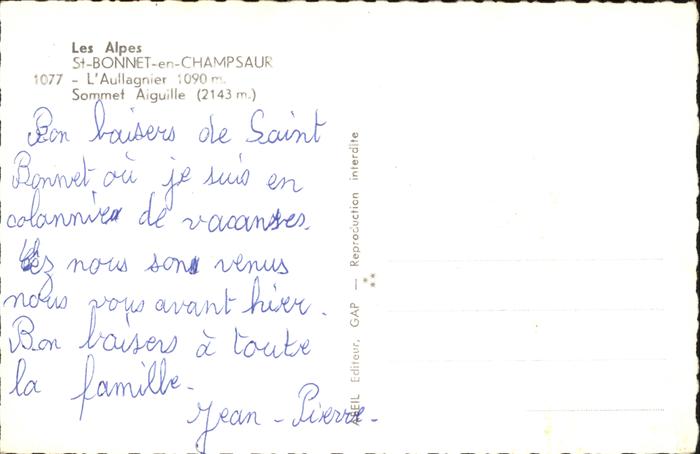 Les Alpes
St-BONNET-en-CHAMPSAUR
1077 - L'Aullagnier 1090 m.
Sommet Aiguille (2143 m.)
Bon baisers de Saint
Bonnet où je suis en
colannier de vacanses.
nous sons venus
nous vous avant hier.
Bon baisers à toute
la famille.
Jean - Pierre -
Editeur, GAP — Reproduction interdite